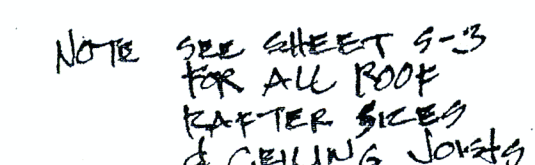 NOTE SEE SHEET S-3
FOR ALL ROOF
RAFTER SIZES
& CEILING JOISTS